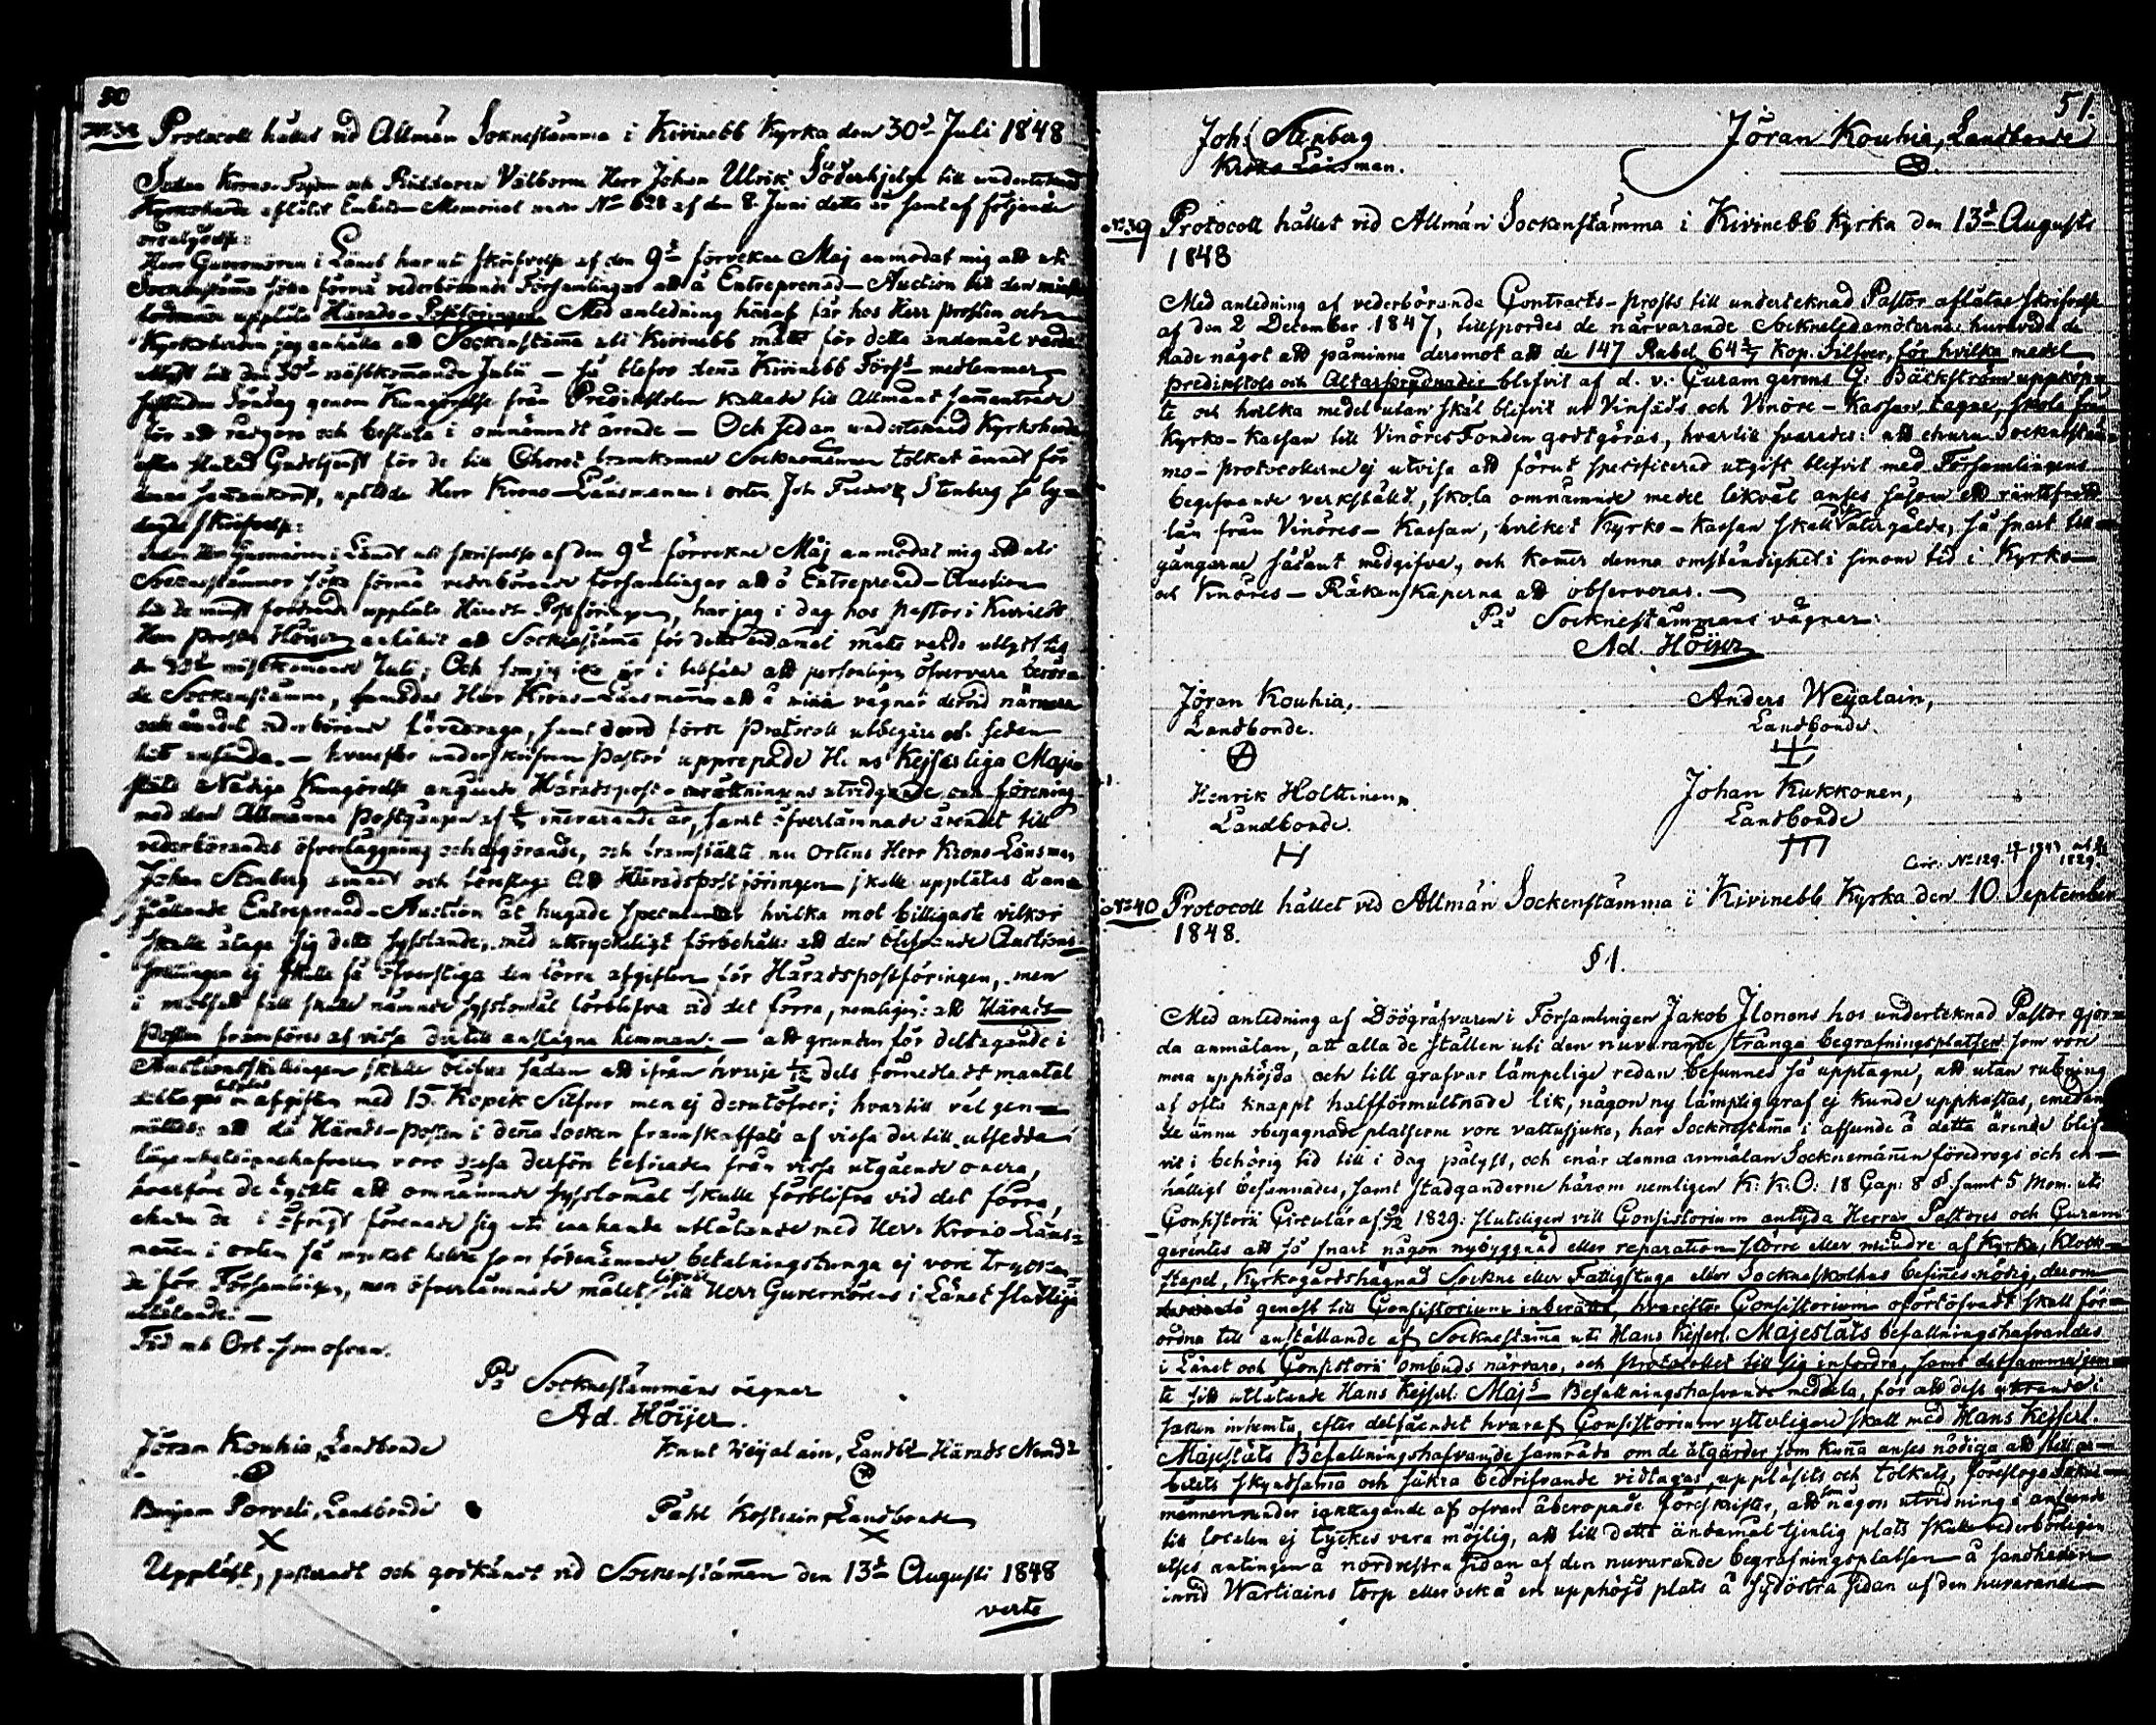 50
№ 38 Protocoll hållet vid Allmän Soknestämma i Kivinebb Kyrka den 30de Juli 1848
Sedan Krono-Fogden och Riddaren Välborne Herr Johan Ulrik Söderhjelm till undertecknad
Kyrkoherde aflåtit Embets-Memorial under No 628 af den 8 Juni detta år samt af följande
ordalydelse:
Herr Guvernören i Länet har uti skrifvelse af den 9de förvekne Maj anmodat mig att uti
Sockenstämma söka förmå vederbörande Församlingar att å Entreprenad-Auction till den minst
fordrande upplåta Härads-Postföringen. Med anledning häraf får hos Herr Prosten och
Kyrkoherden jag anhålla att Sockenstämma uti Kivinebb måtte för detta ändamål varda
utlyst till den 30de nästkommande Julii — så blefvo denna Kivinebb Förs:s medlemmar
Söndag genom Kungörelse från Predikstolen kallade till Allmänt sammanträde
för att rådgöra och besluta i omnämndt ärende — Och sedan undertecknad Kyrkoherde
efter slutad Gudstjenst för de till Choret framkomne Socknemännen tolkat ämnet för
denna sammankomst, upläste Herr Krono-Länsmannen i orten Joh Fredrik Stenberg så ly-
dande skrifvelse:
Sedan Herr Guvernören i Länet uti skrifvelse af den 9de förvekne Maj anmodat mig att uti
Sockenstämmor söka förmå vederbörande församlingar att å Entreprenad-Auction
till de minst fordrande upplåta Härads Postföringen, har jag i dag hos Pastor i Kivinebb
Herr Prosten Höijer anhållit att Sockenstämma för detta ändamål måtte varda utlyst till
den 30de nästkommande Juli; Och som jag icke är i tillfälle att personligen öfvervara berör-
de Sockenstämma, Herr Krono-Länsmannen att å mina vägnar dervid närvara
och ämnet vederbörande föredraga, samt dervid förde Protocoll utbegära och sedan
hit insända. — hvarefter underskrifven Pastor upprepade Hans Kejserliga Maje-
stäts Nådiga Kungörelse angående Häradspost-inrättningens utvidgande och förening
med den Allmänna Postgången af innevarande år, samt öfverlämnade ärendet till
vederbörandes öfverläggning och afgörande, och framställte nu Ortens Herr Krono-Länsman
Johan Stenberg ämnet och föreslog: Att Häradspostföringen skulle upplåtas å an-
ställande Entreprenad-Auction åt hugade spekulanter hvilka mot billigaste vilkor
skulle åtaga sig detta sysslande, med uttryckeligt förbehåll: att den blifvande Auctions-
summan ej skulle få öfverstiga den förra afgiften för Häradspostföringen, men
i motsatt fall skulle nämnde sysslomål förblifva vid det förra, nemligen: att Härads-
Posten framföres af vissa dertill anslagna hemman; — att grunden för deltagande i
Auctionsskillingen skulle blifva sådan att ifrån hvarje 1/12 dels förmedladt mantal
deltages i afgiften med 15. Kopek Silfver men ej derutöfver; hvartill väl gen-
mältes: att då Härads-posten i denna Socken framskaffats af vissa dertill utsedda
lägenhetsinnehafvare vore dessa derföre befriade från vissa utgående onera,
hvarföre de tyckte att omnämnde sysslomål skulle förblifva vid det förra,
ehuru de i öfrigt förenade sig uti enahanda utlåtande med Herr Krono-Läns-
mannen i orten så mycket hellre som förenämnde betalningstunga ej vore trycan-
de för Församlingen, men öfverlämnade målet likväl till Herr Guvernörens i Länet slutliga
utlåtande. —
Tid och Ort som ofvan.
På Socknestämmans vägnar
Ad. Höijer.
Jöran Kouhia, Landbonde
Knut Weijalain, Landb. Härads Nämd:
Benjam Porveli, Landbonde
X
Påhl Kostiain, Landbonde
X
Uppläst, justeradt och godkändt vid Sockenstämman den 13de Augusti 1848
verte
51.
Joh: Stenberg
Krono Länsman.
Jöran Kouhia, Landbonde
№ 39 Protocoll hållet vid Allmän Sockenstämma i Kivinebb Kyrka den 13de Augusti
1848
Med anledning af vederbörande Contracts-prosts till undertecknad Pastor aflåtne skrifvelse
af den 2 December 1847, tillspordes de närvarande Sockneledamöterne, huruvida de
hade något att påminna deremot att de 147 Rubel 64 2/7 Kop. Silfver, för hvilka medel
predikstols och Altarprydnader blifvit af d. v. Curam gerens G: Bäckström uppköp-
te och hvilka medel utan skäl blifvit ur Vinsäds och Vinöre-Kassan tagne, skola från
Kyrko-Kassan till Vinöres Fonden godtgöras, hvartill svarades: att ehuru Socknestäm-
mo-protocollerne ej utvisa att förut specificerad utgift blifvit med Församlingens
begifvande verkställd, skola omnämnde medel likväl anses såsom ett räntefritt
lån från Vinöres-Kassan, hvilket Kyrko-Kassan skall återgälda, så snart till-
gångarne sådant medgifva, och kommer denna omständighet i sinom tid i Kyrko-
och Vinöres-Räkenskaperna att observeras. —
På Socknestämmans vägnar:
Ad. Höijer
Jöran Kouhia,
Landbonde.
Anders Weijalain,
Landbonde.
Henrik Holttinen,
Landbonde.
Johan Kukkonen,
Landbonde
Circ: No 129.
1829.
№ 40 Protocoll hållet vid Allmän Sockenstämma i Kivinebb Kyrka den 10. September
1848.
§ 1.
Med anledning af Dödgräfvaren i Församlingen Jakob Ilonens hos undertecknad Pastor gjor-
da anmälan, att alla de ställen uti den nuvarande trånga begrafningsplatsen som vore
mera upphöjda och till grafvar lämpelige redan befunnes så upptagne, att utan rubbning
af ofta knappt halfförmultnade lik, någon ny lämplig graf ej kunde uppkastas, emedan
de ännu obegagnade platserne vore vattusjuka, har Socknestämma i afseende å detta ärende blif-
vit i behörig tid till i dag pålyst, och enär denna anmälan Socknemännen föredrogs och en-
hälligt besannades, samt stadganderne härom nemligen K: K: O: 18 Cap: 8 §. samt 5 Mom. uti
Consistorii Circulär af 1829: slutligen vill Consistorium antyda Herrar Pastores och Curam
gerentes att så snart någon nybyggnad eller reparation större eller mindre af Kyrka, Klock-
stapel, Kyrkogårdshägnad Sockne eller Fattigstuga eller Sockneskolhus befinnes nödig, derom
genast till Consistorium inberätta, hvarefter Consistorium oförtöfvadt skall för-
ordna till anställande af Socknestämma uti Hans Kejserl. Majestäts befallningshafvandes
i Länet och Consistorii ombuds närvaro, och protocollet till sig infordra, samt detsamma jem-
te sitt utlåtande Hans Kejserl. Majts Befallningshafvande meddela, för att dess yttrande i
saken inhemta, efter det sådant hvaraf Consistorium ytterligare skall med Hans Kejserl.
Majestäts Befallningshafvande samråda om de åtgärder som kunna anses nödiga att till ar-
betets skyndsamma och säkra bedrifvande vidtagas, upplästs och tolkats, föreslogo Sockne-
männen under iakttagande af ofvan åberopade föreskrifter, att som någon utvidning i anseende
till localen ej tyckes vara möjlig, att till detta ändamål tjenlig plats skulle vederbörligen
utses antingen å nordvestra sidan af den nuvarande begrafningsplatsen å sandheden
invid Wartiains torp eller ock å en upphöjd plats å sydöstra sidan af den nuvarande